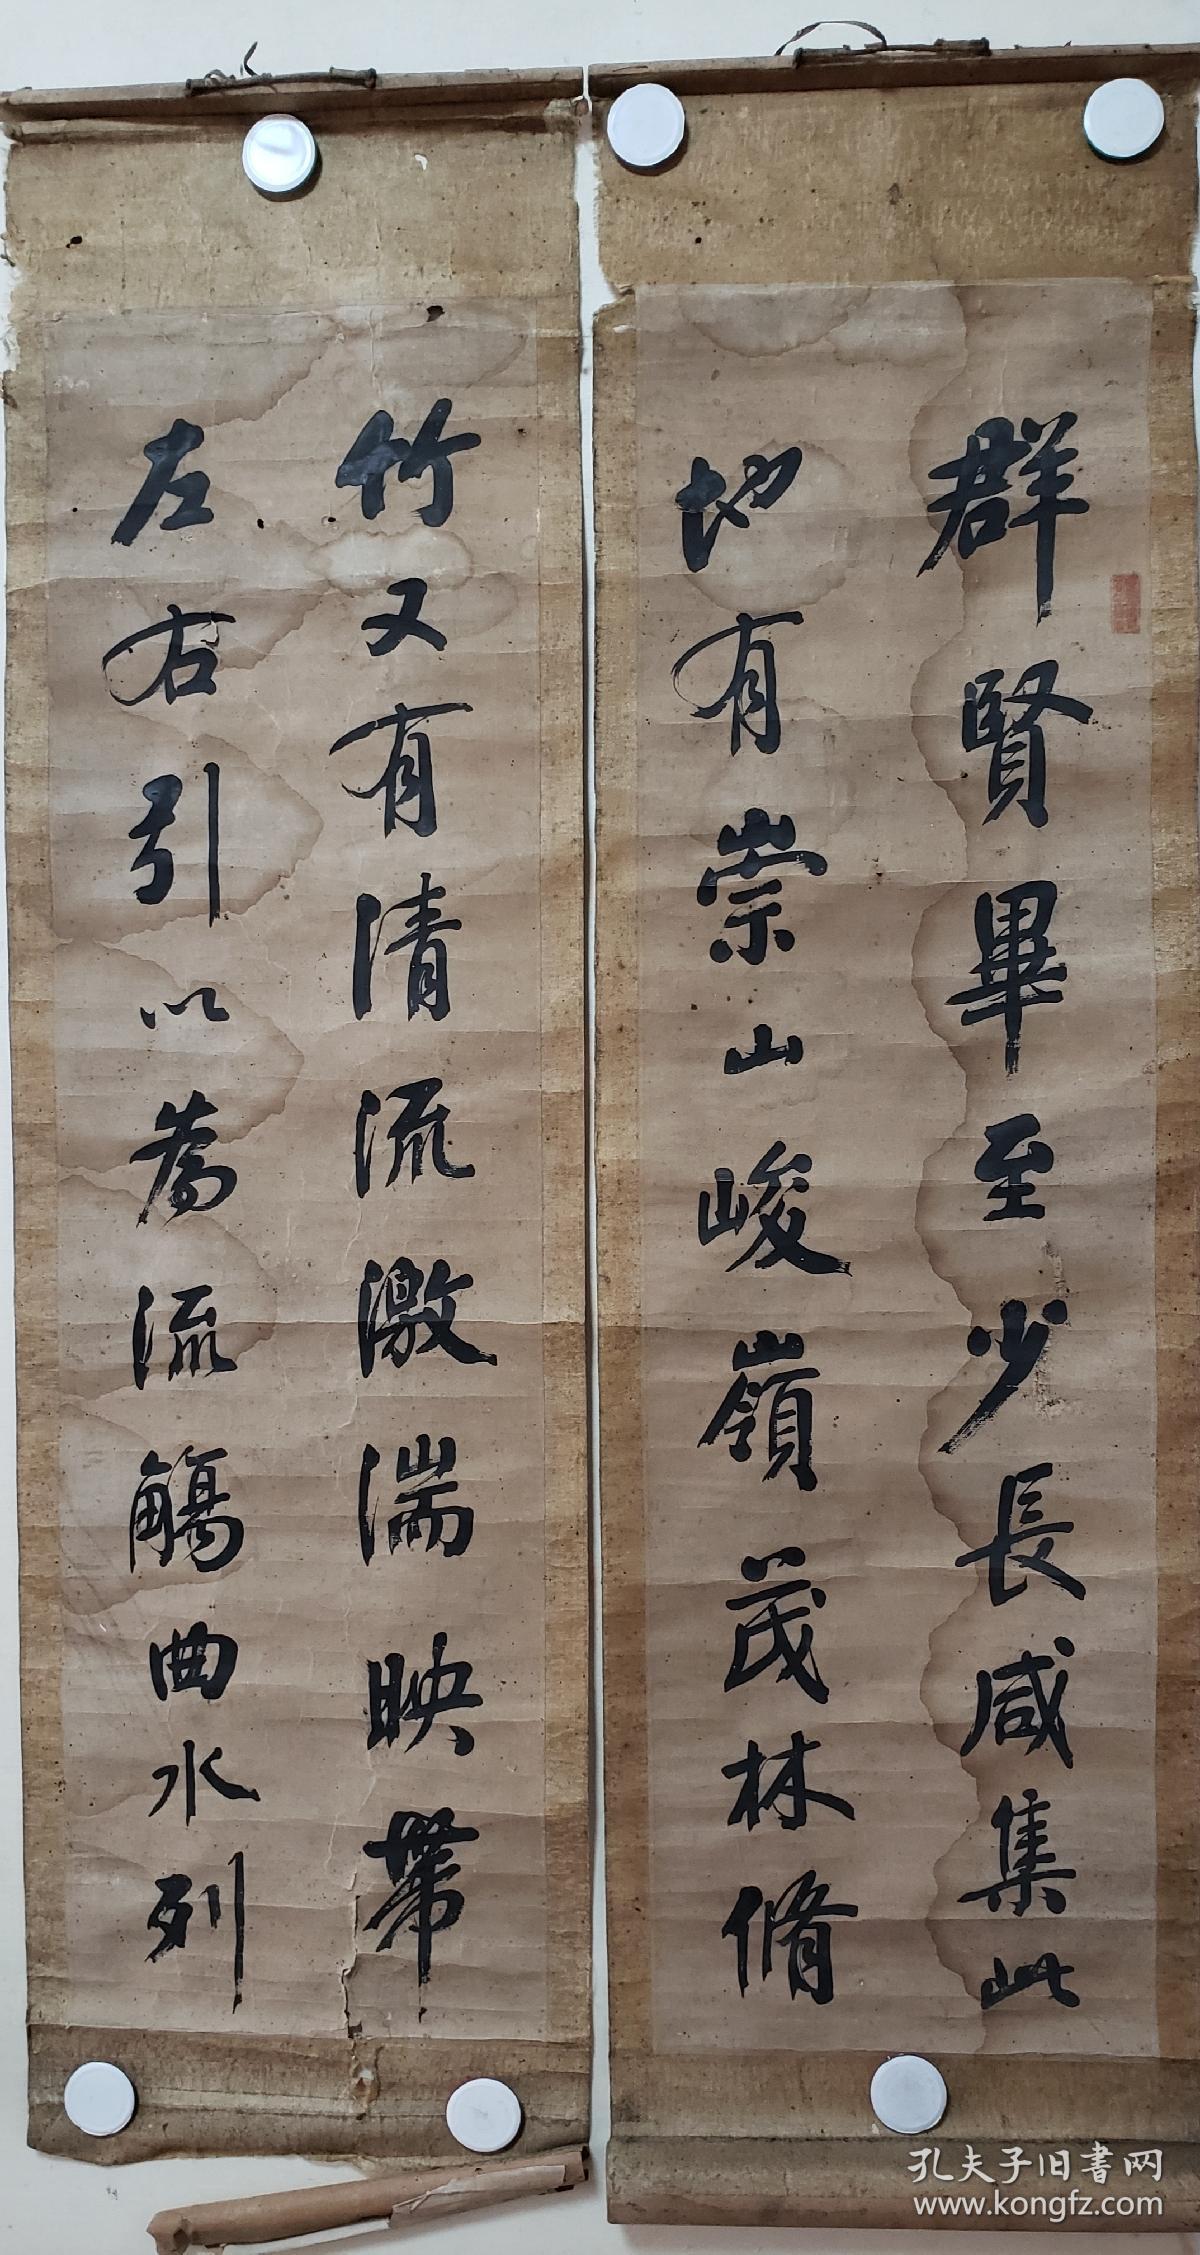 群賢畢至少長咸集此
地有崇山峻嶺茂林脩
竹又有清流激湍映帶
左右引以為流觴曲水列
孔夫子旧書网
www.kongfz.com